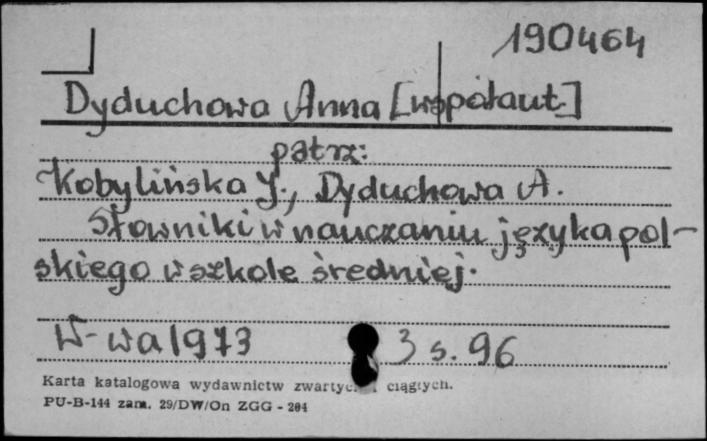 190464
Dyduchowa Anna [współaut.]
patrz:
Kobylińska J., Dyduchowa A.
Słowniki w nauczaniu języka pol-
skiego w szkole średniej.
W-wa 1973 3 s. 96
Karta katalogowa wydawnictw zwartych i ciągłych.
PU-B-144 zam. 29/DW/On ZGG - 204